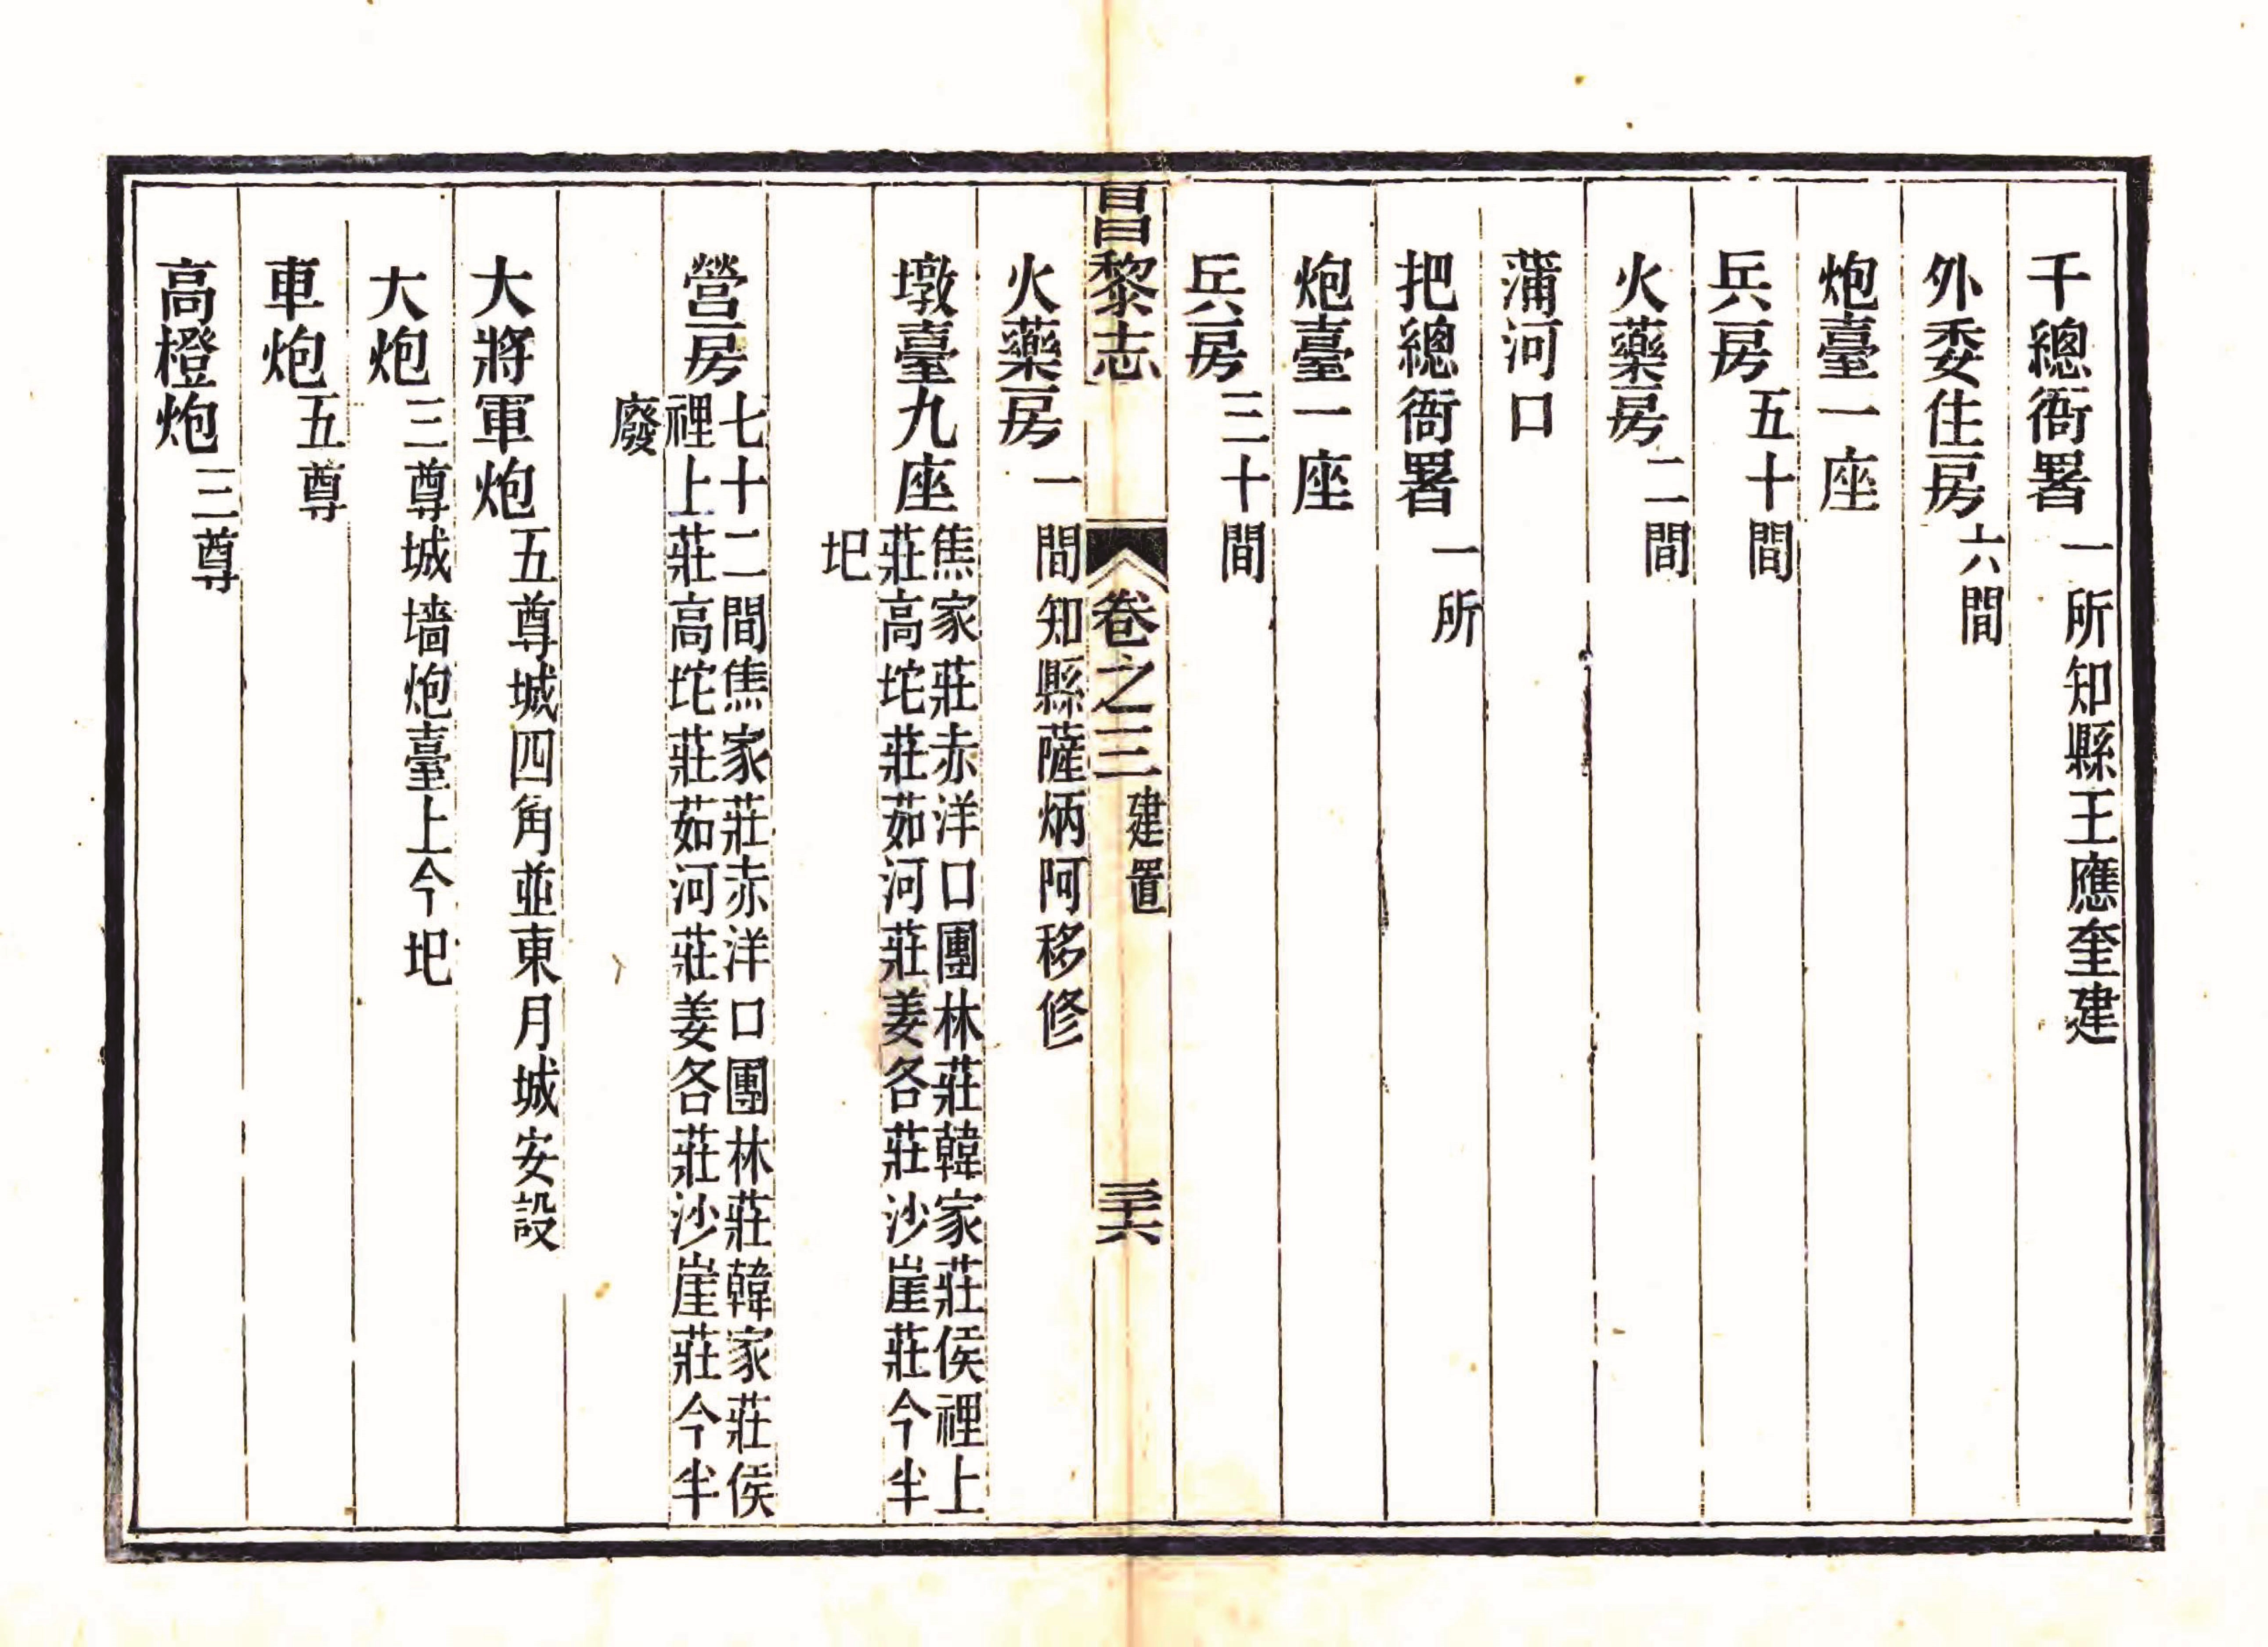 千總衙署一所知縣王應奎建
外委住房六間
炮臺一座
兵房五十間
火藥房二間
蒲河口
把總衙署一所
炮臺一座
兵房三十間
昌黎志 卷之三 建置 三十六
火藥房一間知縣薩炳阿移修
墩臺九座焦家莊赤洋口團林莊韓家莊侯裡上
莊高坨莊茹河莊姜各莊沙崖莊今半
圯
營房七十二間焦家莊赤洋口團林莊韓家莊侯
裡上莊高坨莊茹河莊姜各莊沙崖莊今半
廢
大將軍炮五尊城四角並東月城安設
大炮三尊城墻炮臺上今圯
車炮五尊
高橙炮三尊